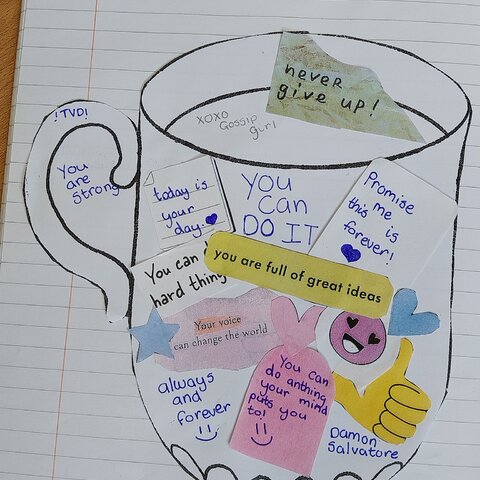 never
give up!
xoxo
Gossip
girl
!TVD!
You
are
strong
today is
your
day.
YOU
CAN
DO IT
Promise
me
this is
forever!
You can
hard thing
you are full of great ideas
Your voice
can change the world
always
and
forever
You can
do anthing
your mind
puts you
to!
Damon
Salvatore